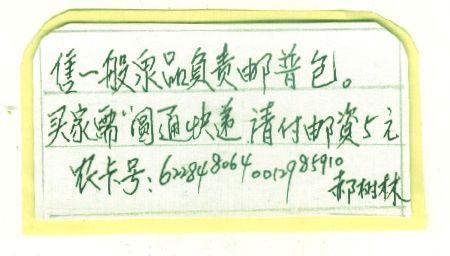 售一般泉品負责邮普包。
买家需“圆通快递 请付邮資5元
农卡号：6228480640012985910
郝树林